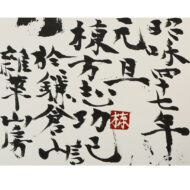 昭和四十七年
元旦
棟方志功記
於鎌倉山
雑華山房
棟